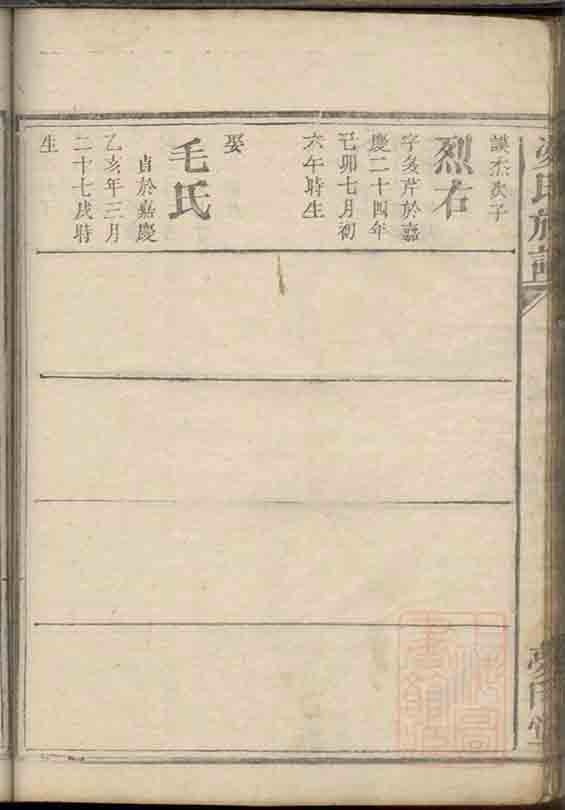 謨杰次子
烈右
字多芹於嘉
慶二十四年
己卯七月初
六午時生
娶
毛氏
貞於嘉慶
乙亥年三月
二十七戌時
生
氏族譜